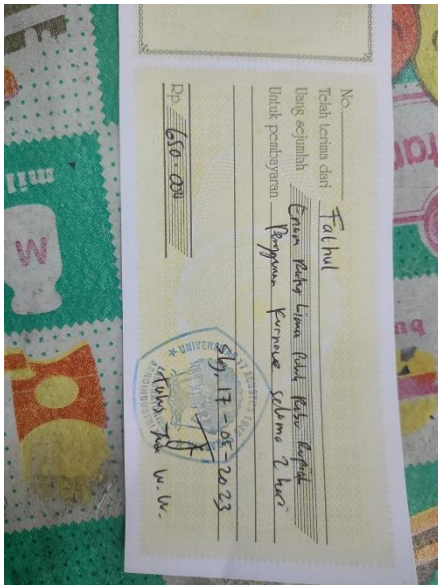 No.
Telah terima dari Fathul
Uang sejumlah Enam Ratus Lima Puluh Ribu Rupiah
Untuk pembayaran Penggunaan Furnace selama 2 hari
Rp. 650.000
Sby, 17-05-2023
UNIVERSITAS 17 AGUSTUS 1945
W.W.
mil
M